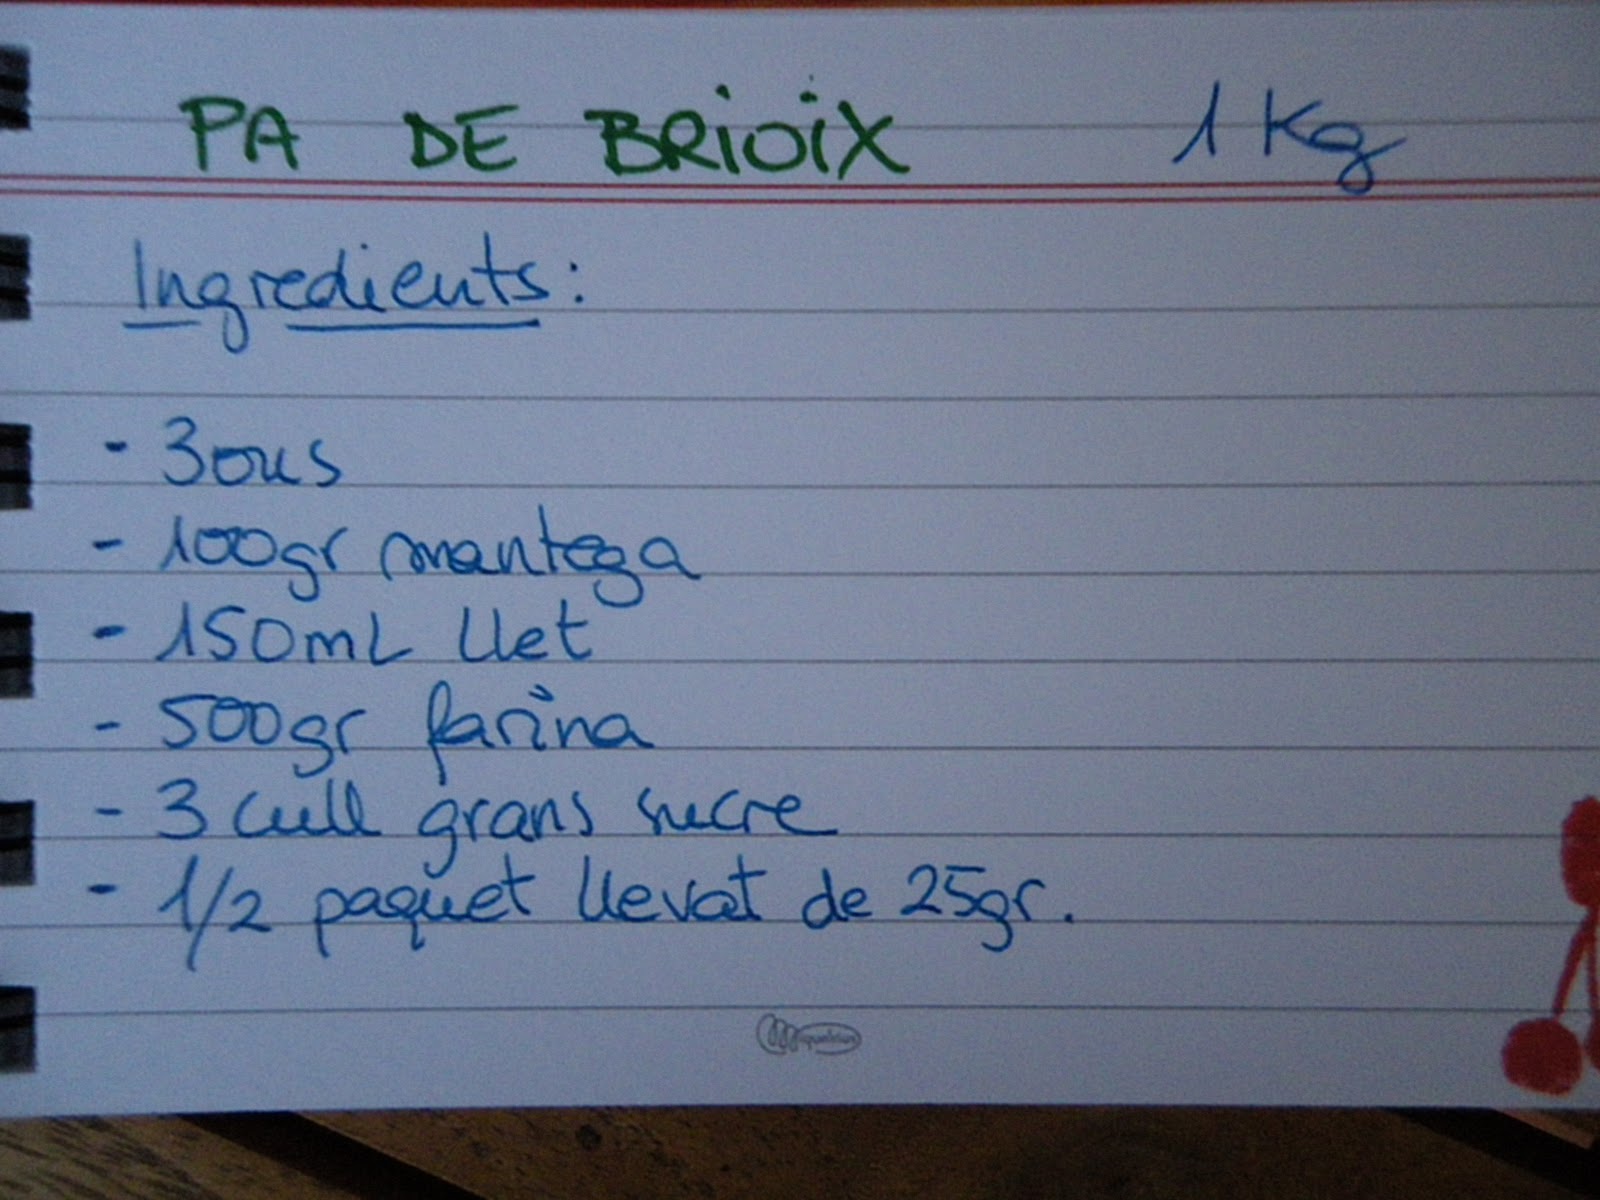 PA DE BRIOIX 1 Kg
Ingredients:
- 3 ous
- 100gr mantega
- 150mL llet
- 500gr farina
- 3 cull grans sucre
- 1/2 paquet llevat de 25gr.
Miquelrius